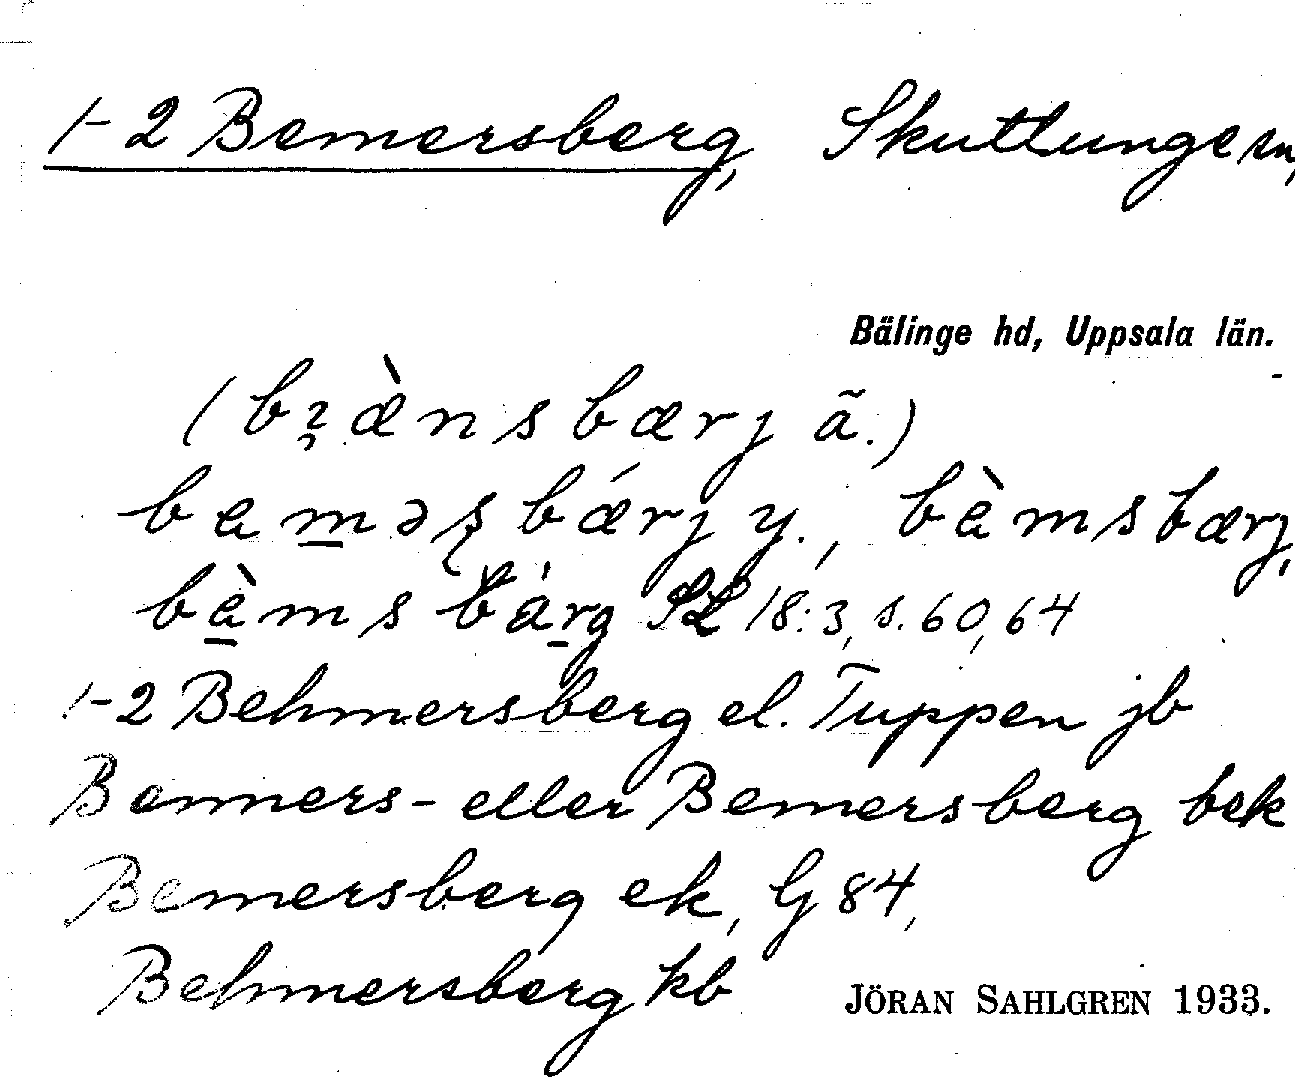 1-2 Bemersberg, Skuttungem,
Bälinge hd, Uppsala län.
(bɂ̣æ̀nsbærj ã.)
bem̲əʂbǽrj y., bèmsbærj,
bè̲msbár̲g SL 18:3, s. 60, 64
1-2 Behmersberg el. Tuppen jb
Bemmers- eller Bemersberg bek
Bemersberg ek, G 84,
Behmersberg kb
JÖRAN SAHLGREN 1933.